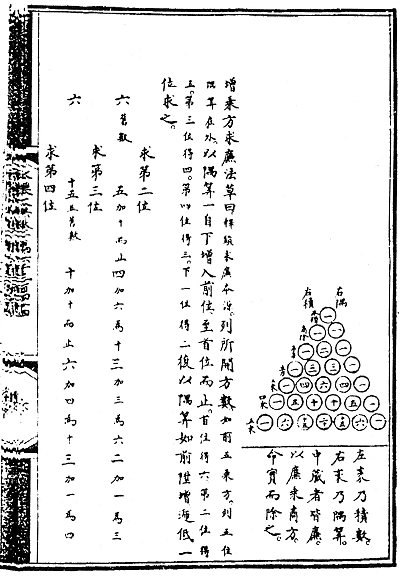 右隅
一
一 一
一 二 一
一 三 三 一
一 四 六 四 一
一 五 十 十 五 一
一 六 十五 二十 十五 六 一
左袤乃積數。
右袤乃隅算。
中藏者皆廉。
以廉乘商方。
命實而除之。
增乘方求廉法草曰釋鎖求廉本源。列所開方數如前五乘方。列五位
隅算在外。以隅算一自下增入前位。至首位而止。首位得六。第二位得
五。第三位得四。第四位得三。下一位得二。復以隅算如前陞增遞低一
位求之。
求第二位
六舊數 五加十而止 四加六為十 三加三為六 二加一為三
求第三位
六 十五並舊數 十加十而止 六加四為十 三加一為四
求第四位